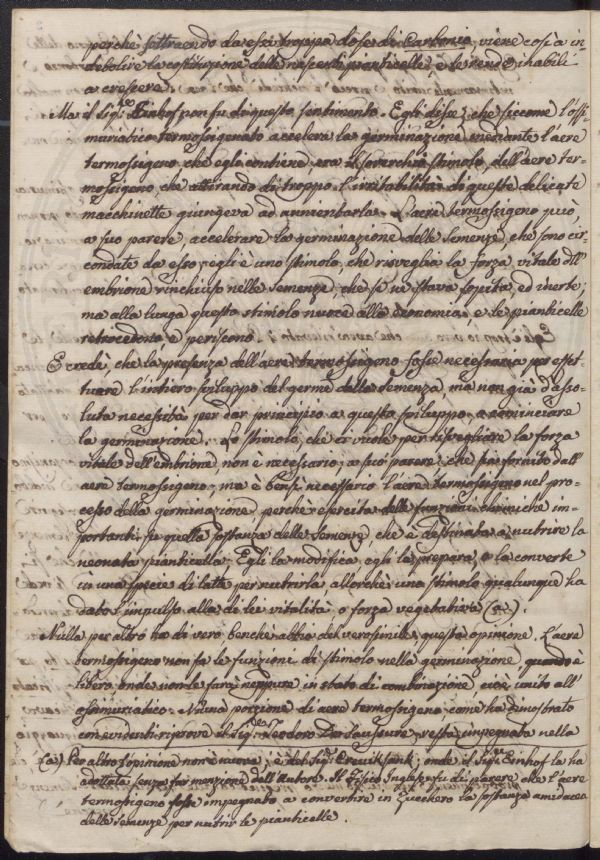 perchè sottraendo da essi troppa dose di Carbonio, viene così a in-
debolire la costituzione delle nascenti pianticelle, e le rende inabili
a crescere.
Ma il Sigr Einhof non fu di questo sentimento. Egli disse, che siccome l'ossi-
muriatico termossigenato accelera la germinazione mediante l'aere
termossigeno che egli contiene, era il soverchio stimolo dell'aere ter-
mossigeno che attirando di troppo l'irritabilità di queste delicate
macchinette giungeva ad annientarla. L'aere termossigeno può,
a suo parere, accelerare la germinazione delle semenze, che sono cir-
condate da esso; egli è uno stimolo, che risveglia la forza vitale dell'
embrione rinchiuso nelle semenze, che se ne stava sopita, ed inerte;
ma alla lunga questo stimolo nuoce alla economia, e le pianticelle
retrocedono e periscono.
E crede, che la presenza dell'aere termossigeno fosse necessaria per effet-
tuare l'intiero sviluppo del germe della semenza, ma non già d'asso-
luta necessità per dar principio a questo sviluppo, a cominciare
la germinazione. Lo stimolo, che ci vuole per risvegliare la forza
vitale dell'embrione, non è necessario, a suo parere, che sia fornito dall'
aere termossigeno; ma è bensì necessario l'aere termossigeno nel pro-
cesso della germinazione perchè esercita delle funzioni chimiche im-
portanti su quella sostanza delle semenze, che è destinata a nutrire la
neonata pianticella. Egli la modifica, egli la prepara, e la converte
in una specie di latte per nutrirla allorchè uno stimolo qualunque ha
dato l'impulso alla di lei vitalità o forza vegetativa (a).
Nulla per altro ha di vero benchè abbia del verosimile questa opinione. L'aere
termossigeno non fa le funzione di stimolo nella germinazione quando è
libero, onde non le farà neppure in stato di combinazione cioè unito all'
ossimuriatico. Niuna porzione di aere termossigeno, come ha dimostrato
con evidenti riprove il Sigr Teodoro De Saussure, resta impegnata nella
(a) Per altro l'opinione non è nuova; è del Sigr Cruikshank; onde il Sigr Einhof la ha
adottata senza far menzione dell'Autore. Il Fisico Inglese fu di parere che l'aere
termossigeno fosse impegnato a convertire in Zucchero la sostanza amidacea
delle semenze per nutrir le pianticelle.